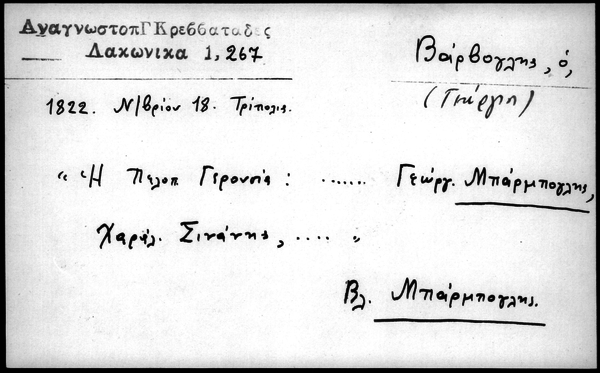 ΑναγνωστοπΓΚρεββαταδες
Λακωνικα 1, 267
Βάρβογλης, ὁ,
(Γιώργη)
1822. Ν/βρίου 18. Τρίπολις.
"Ἡ Πελοπ Γερουσία: ...... Γεώργ. Μπάρμπογλης,
Χαράλ. Σινάνης, .... "
Βλ. Μπάρμπογλης.